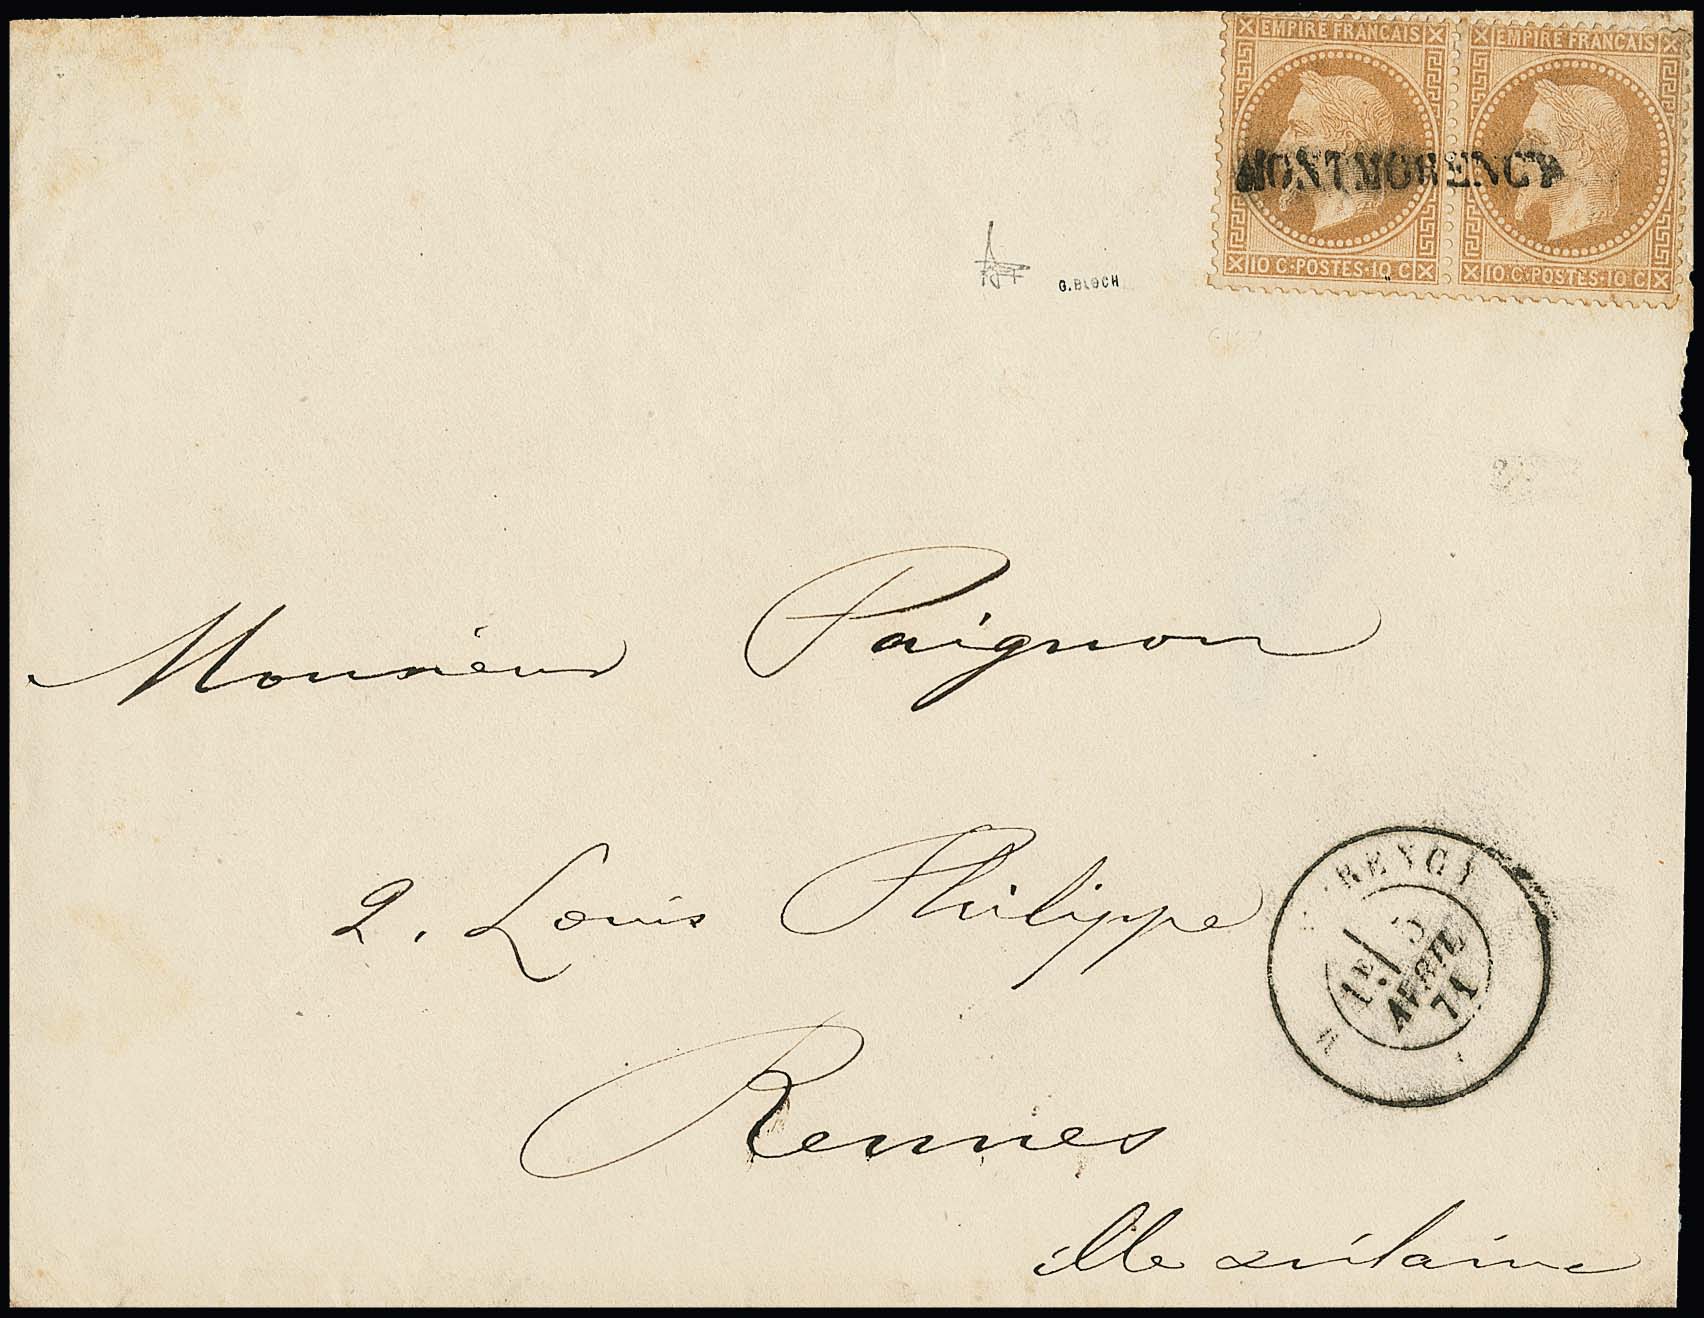 EMPIRE FRANCAIS EMPIRE FRANCAIS
MONTMORENCY
10 C·POSTES·10 C 10 C·POSTES·10 C
G.BLOCH
Monsieur Paignon
2. Louis Philippe
Rennes
ille et vilaine
RENCY
1E 5
AVRIL
71